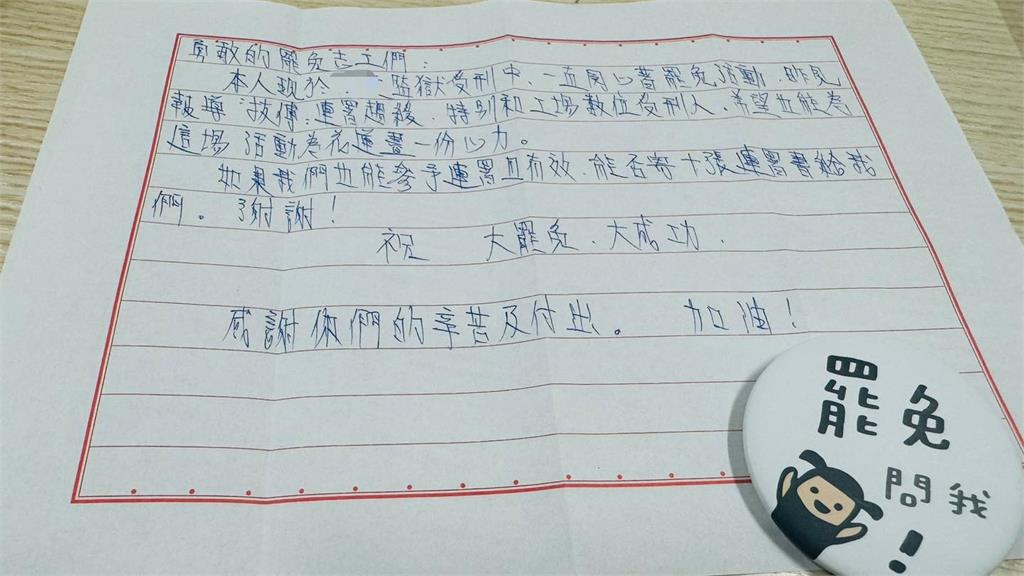 勇敢的罷免志工們：
本人現於 監獄受刑中、一直關心著罷免活動、昨見
報導:技傳:連署趨緩、特別和工場數位受刑人、希望也能為
這場活動為花蓮盡一份心力。
如果我們也能參予連署且有效、能否寄十張連署書給我
們。謝謝！
祝 大罷免、大成功、
感謝你們的辛苦及付出。 加油！
罷免
問我
！